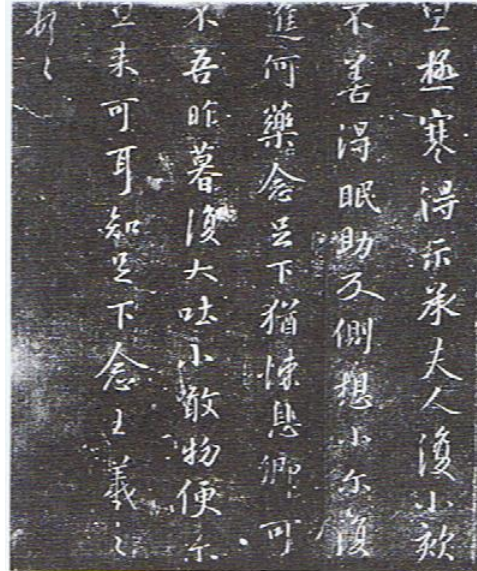 旦極寒得示承夫人復小欬
不善得眠助反側想小尓復
進何藥念足下猶悚息卿可
不吾昨暮復大吐小敢物便尓
旦来可耳知足下念王羲之
頓〻